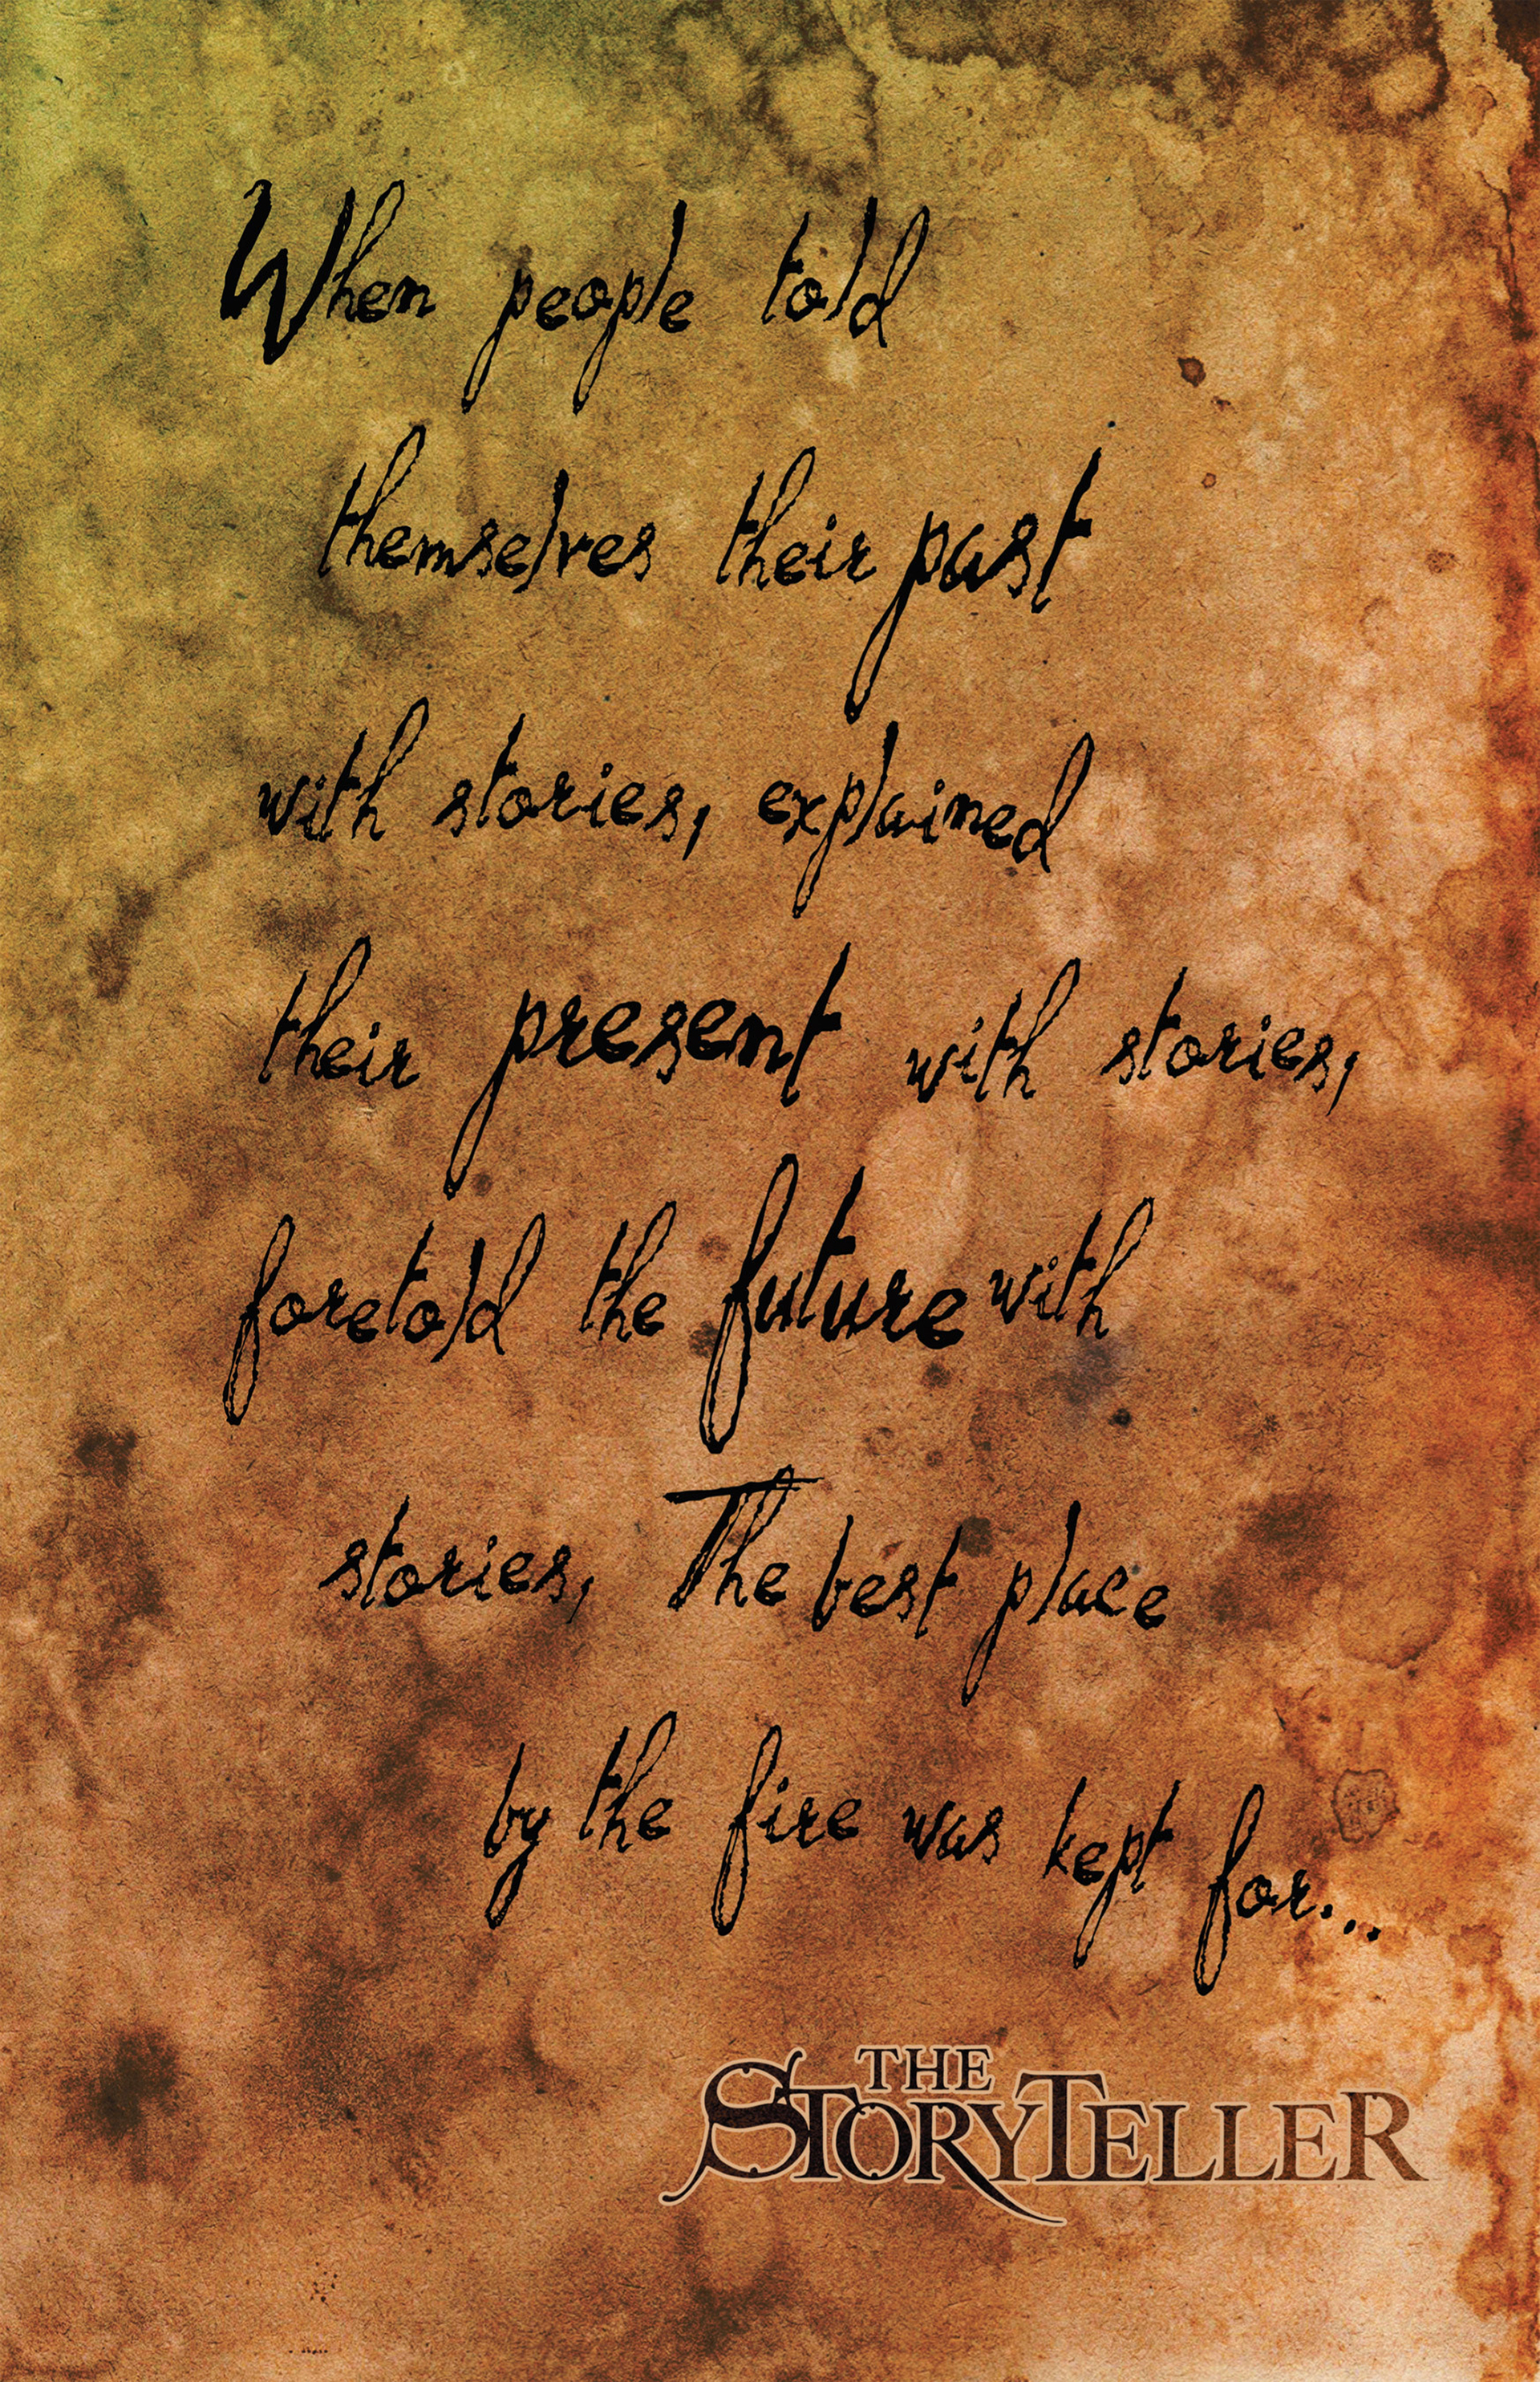 When people told
themselves their past
with stories, explained
their present with stories,
foretold the future with
stories, The best place
by the fire was kept for...
THE
STORYTELLER